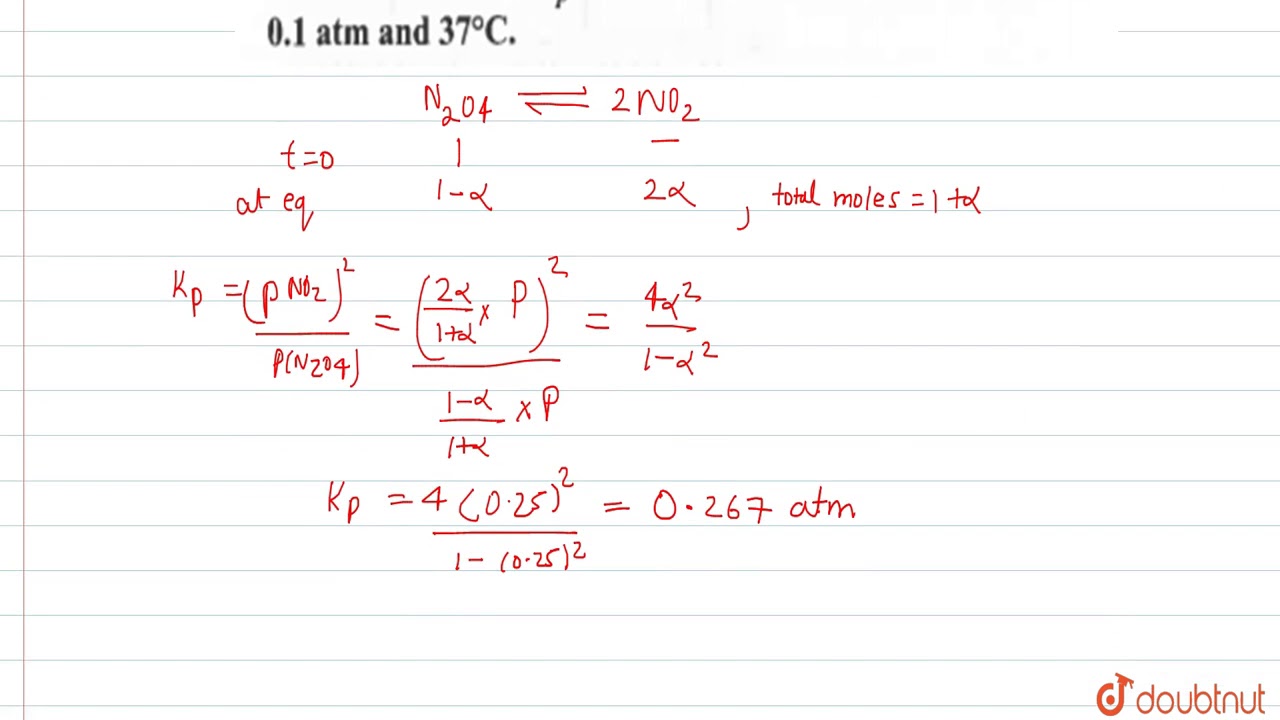 0.1 atm and 37°C.
N₂O₄ ⇌ 2NO₂
t=0 1 —
at eq 1-α 2α , total moles = 1+α
Kp = (pNO₂)² / P(N₂O₄) = (2α/(1+α) × P)² / ((1-α)/(1+α) × P) = 4α²/(1-α²)
Kp = 4(0.25)² / (1-(0.25)²) = 0.267 atm
doubtnut